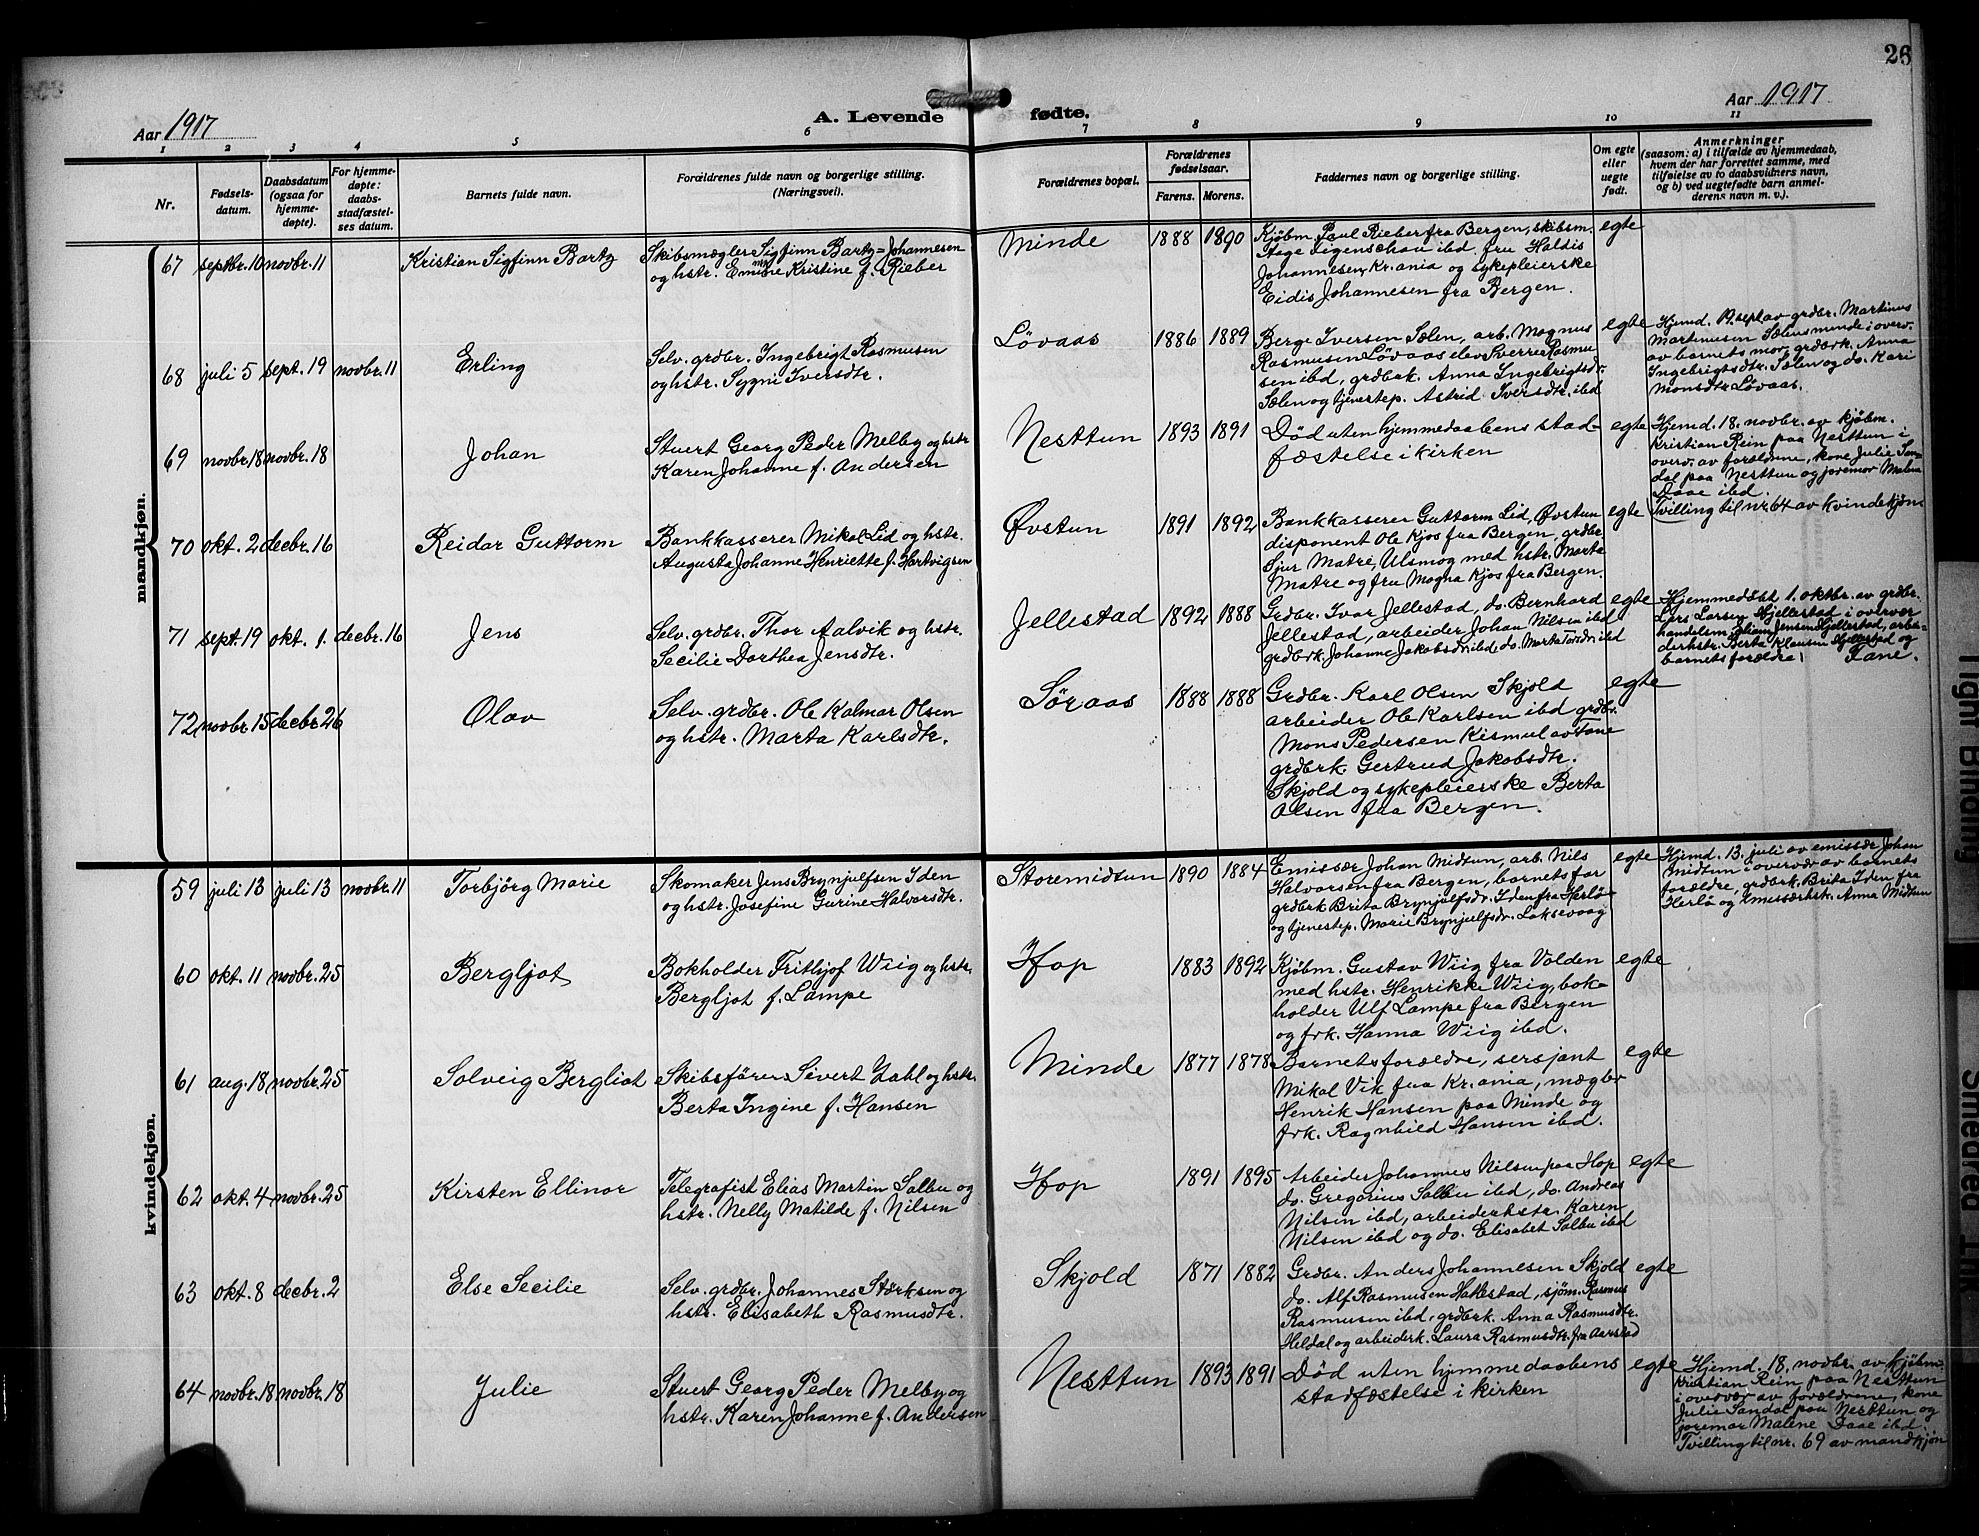 26
Aar 1917
A. Levende fødte.
Aar 1917
1 2 3 4 5 6 7 8 9 10 11
Nr.
Fødsels-
datum.
Daabsdatum
(ogsaa for
hjemme-
døpte).
For hjemme-
døpte:
daabs-
stadfæstel-
ses datum.
Barnets fulde navn.
Forældrenes fulde navn og borgerlige stilling.
(Næringsvei).
Forældrenes bopæl.
Forældrenes
fødselsaar.
Farens. Morens.
Faddernes navn og borgerlige stilling.
Om egte
eller
uegte
født.
Anmerkninger
(saasom: a) i tilfælde av hjemmedaab,
hvem der har forrettet samme, med
tilføielse av to daabsvidners navn,
og b) ved uegtefødte barn anmel-
derens navn m. v.).
mandkjøn.
67 septbr. 10 novbr. 11 Kristian Sigfinn Bartz
Skibsmægler Sigfinn Bartz=Johannesen
og hstr. Emine Kristine f. Rieber
Minde 1888 1890
Kjøbm. Paul Rieber fra Bergen, skibsm.
Aage ibd, fru Haldis
Johannesen, Kr.ania og sykepleierske
Eidis Johannesen fra Bergen.
egte
68 juli 5 sept. 19 novbr. 11 Erling
Selv. grdbr. Ingebrigt Rasmusen
og hstr. Sygni Iversdtr.
Løvaas 1886 1889
Berge Iversen Sælen, arb. Magnus
Rasmusen Løvaas elev Sverre Rasmu
sen ibd, grdbrk. Anna Ingebrigtsdr.
Sælen og tjenestep. Astrid Iversdtr. ibd
egte
Hjemd. 19. sept av grdbr. Martinus
Martinusen Sælensminde i overv.
av barnets mor, grdbrk. Anna
Ingebrigtsdtr. Sælen og do. Kari
Monsdtr. Løvaas.
69 novbr. 18 novbr. 18 Johan
Stuert Georg Peder Melby og hstr.
Karen Johanne f. Andersen
Nesttun 1893 1891
Død uten hjemmedaabens stad-
fæstelse i kirken
egte
Hjemd. 18. novbr. av kjøbm.
Kristian Rein paa Nesttun i
overv. av forældrene, kone Julie San-
dal paa Nesttun og jormor Malena
Daae ibd.
Tvilling til nr. 64 av kvindekjøn
70 okt. 2 decbr. 16 Reidar Guttorm
Bankkasserer Mikal Lid og hstr.
Augusta Johanne Henriette f. Hartvigsen
Øvstun 1891 1892
Bankkasserer Guttorm Lid, Øvstun
disponent Ole Kjos fra Bergen, grdbr.
Sjur Matre, Ulsmog med hstr. Marta
Matre og fru Magna Kjos fra Bergen.
egte
71 sept. 19 okt. 1. decbr. 16 Jens
Selv. grdbr. Thor Aalvik og hstr.
Secilie Dorthea Jensdtr.
Jellestad 1892 1888
Grdbr. Ivar Jellestad, do. Bernhard
Jellestad, arbeider Johan Nilsen ibd
grdbrk. Johanne Jakobsdr. ibd, do. Marta ibd
egte
Hjemmedøbt 1. oktbr. av grdbr.
Lars Larsen Hjellestad i overvær
handelsm. Jensen Hjellestad, arbei-
derhstr. Berta Klausen Hjellestad og
barnets forældre. Fane.
72 novbr. 15 decbr. 26 Olav
Selv. grdbr. Ole Kalmar Olsen
og hstr. Marta Karlsdtr.
Søraas 1888 1888
Grdbr. Karl Olsen Skjold
arbeider Ole Karlsen ibd grdbr.
Mons Pedersen Kismul av Fane
grdbrk. Gertrud Jakobsdtr.
Skjold og sykepleierske Berta
Olsen fra Bergen.
egte
kvindekjøn.
59 juli 13 juli 13 novbr. 11 Torbjörg Marie
Skomaker Jens Brynjulfsen Iden
og hstr. Josefine Gurine Halvorsdtr.
Storemidtun 1890 1884
Emissær Johan Midtun, arb. Nils
Halvorsen fra Bergen, barnets far
grdbrk Brita Brynjulfsdr. Iden fra Herlø-
og tjenestep. Marie Brynjulfsdr. Laksevaag
egte
Hjemd. 13. juli av emissær Johan
Midtun i overvær av barnets
forældre, grdbrk. Brita Iden fra
Herlø og Emissærhstr. Anna Midtun
60 okt. 11 novbr. 25 Bergljot
Bokholder Frithjof Wiig og hstr.
Bergljot f. Lampe
Hop 1883 1892
Kjøbm. Gustav Wiig fra Volden
med hstr. Henrikke Wiig, bok-
holder Ulf Lampe fra Bergen
og frk. Hanna Wiig ibd.
egte
61 aug. 18 novbr. 25 Solveig Bergliot
Skibsfører Sivert Dahl og hstr.
Berta Ingine f. Hansen
Minde 1877 1878
Barnets forældre, sersjant
Mikal Vik fra Kr.ania, mægler
Henrik Hansen paa Minde og
frk. Ragnhild Hansen ibd.
egte
62 okt. 4 novbr. 25 Kirsten Ellinor
Telegrafist Elias Martin Salbu og
hstr. Nelly Matilde f. Nilsen
Hop 1891 1895
Arbeider Johannes Nilsen paa Hop
do. Gregorius Salbu ibd, do. Andreas
Nilsen ibd, arbeiderhstr. Karen
Nilsen ibd og do. Elisabet Salbu ibd
egte
63 okt. 8 decbr. 2 Else Secilie
Selv. grdbr. Johannes Størksen og
hstr. Elisabeth Rasmusdtr.
Skjold 1871 1882
Grdbr. Anders Johannesen Skjold
do. Alf Rasmusen Hatlestad, sjøm. Rasmus
Rasmusen ibd, grdbrk. Anna Rasmusdtr.
Heldal og arbeiderk. Laura Rasmusdtr. fra Aarstad
egte
64 novbr. 18 novbr. 18 Julie
Stuert Georg Peder Melby og
hstr. Karen Johanne f. Andersen
Nesttun 1893 1891
Død uten hjemmedaabens
stadfæstelse i kirken
egte
Hjemd. 18. novbr. av kjøbm.
Kristian Rein paa Nesttun
i overvær av forældrene, kone
Julie Sandal paa Nesttun og
joremor Malene Daae ibd.
Tvilling til nr. 69 av mandkjøn
Tight Binding
Smeared Ink